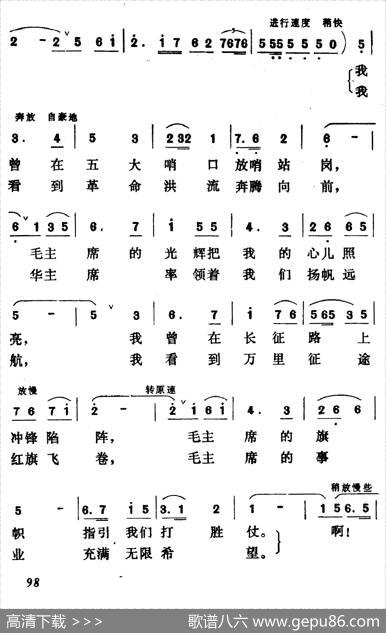 进行速度 稍快
2 - | 2 5 6 i | 2. i 7 6 2 7676 | 555 5 5 5 0 ) 5
我
我
奔放 自豪地
3. 4 | 5 3 | 1 232 1 | 7. 6 2 | 6 -
曾 在 五 大 哨 口 放哨 站 岗,
看 到 革 命 洪 流 奔腾 向 前,
6 1 3 5 | 6. 7 | i 5 5 | 4. 3 | 2 6 6
毛主 席 的 光 辉把 我 的 心儿 照
华主 席 率 领着 我 们 扬帆 远
5 - | 5 3 | 6. 7 | i 7 6 | 5 65 3 5
亮, 我 曾 在 长 征 路 上
航, 我 看 到 万 里 征 途
放慢 转原速
7 6 7 i | 2 - | 2 i 6 i | 4. 3 | 2 6 6
冲锋 陷 阵, 毛主 席 的 旗
红旗 飞 卷, 毛主 席 的 事
稍放慢些
5 - | 6. 7 i 5 | 3. 1 2 | 1 - | 1 5 6. 5
帜 指引 我们 打 胜 仗。 啊!
业 充满 无限 希 望。
98
高清下载 >>>
歌谱八六 www.gepu86.com